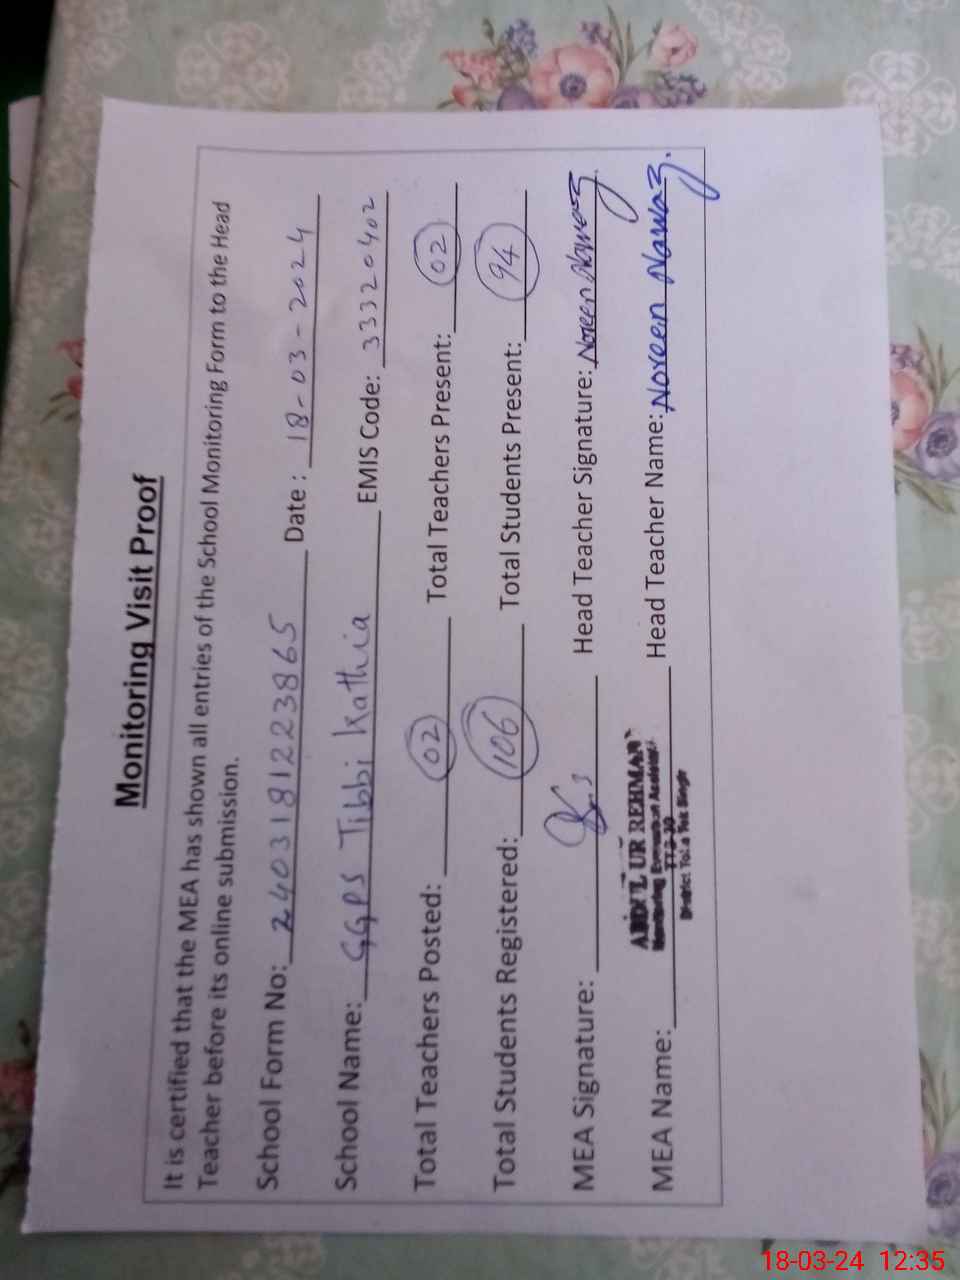 Monitoring Visit Proof
It is certified that the MEA has shown all entries of the School Monitoring Form to the Head
Teacher before its online submission.
School Form No: 2403181223865 Date : 18-03-2024
School Name: GGPS Tibbi Kathia EMIS Code: 33320402
Total Teachers Posted: 02 Total Teachers Present: 02
Total Students Registered: 106 Total Students Present: 94
MEA Signature: Head Teacher Signature: Noreen Nawaz
MEA Name: Head Teacher Name: Noreen Nawaz.
ABDUL UR REHMAN
Monitoring Evaluation Assistant
District Toba Tek Singh
18-03-24 12:35